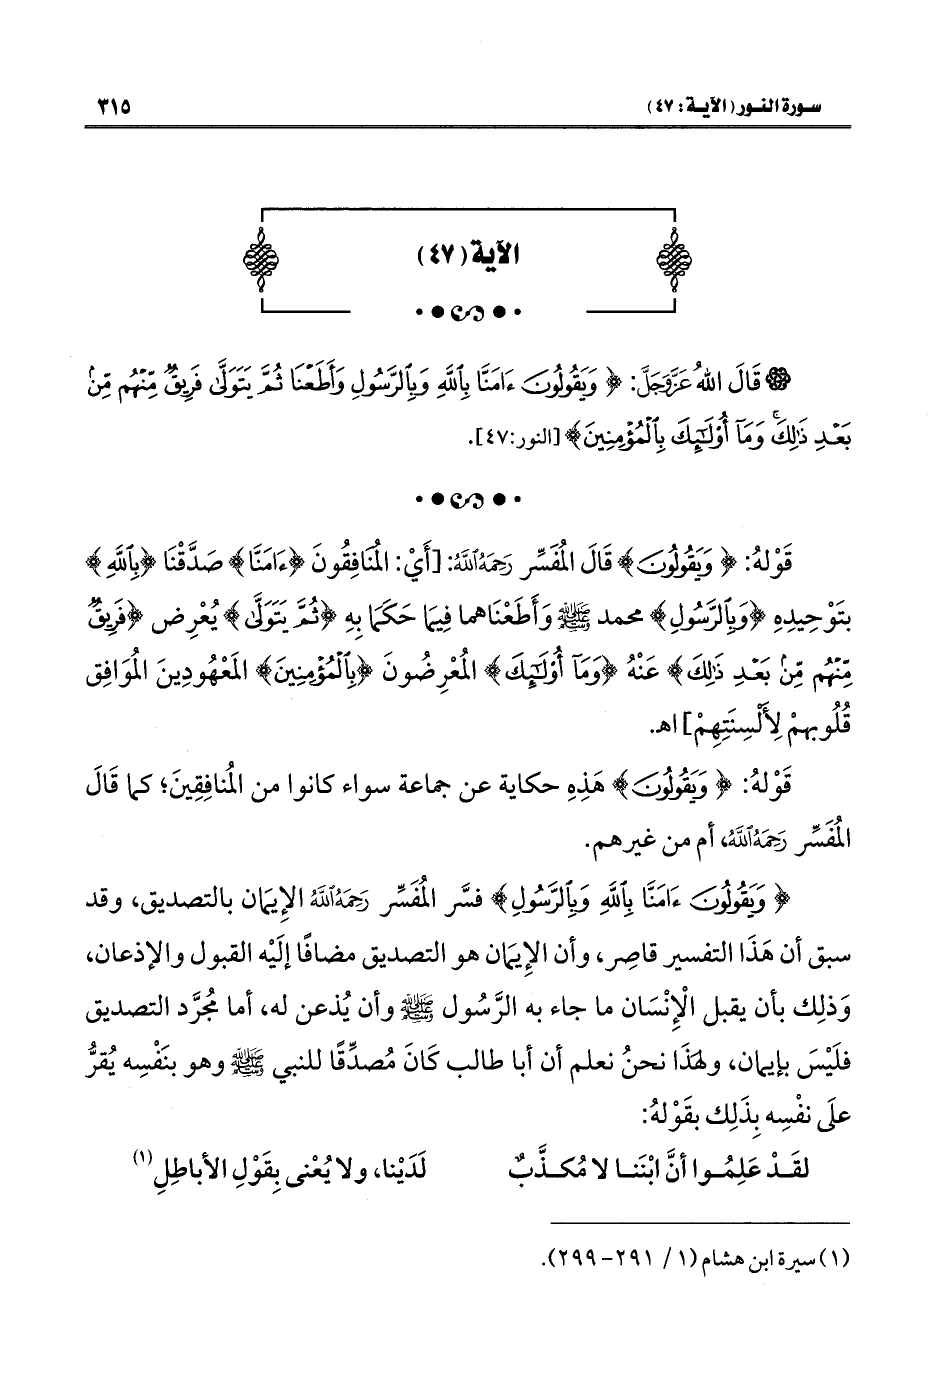 سورة النور (الآية: ٤٧) ٣١٥
الآية (٤٧)
قَالَ اللهُ عَزَّوَجَلَّ: ﴿وَيَقُولُونَ ءَامَنَّا بِٱللَّهِ وَبِٱلرَّسُولِ وَأَطَعْنَا ثُمَّ يَتَوَلَّىٰ فَرِيقٌ مِّنْهُم مِّنۢ
بَعْدِ ذَٰلِكَ ۚ وَمَآ أُو۟لَـٰٓئِكَ بِٱلْمُؤْمِنِينَ﴾ [النور:٤٧].
قَوْلهُ: ﴿وَيَقُولُونَ﴾ قَالَ المُفَسِّر رَحِمَهُ ٱللَّهُ: [أَيْ: المُنَافِقُونَ ﴿ءَامَنَّا﴾ صَدَّقْنَا ﴿بِٱللَّهِ﴾
بتَوْحِيدِهِ ﴿وَبِٱلرَّسُولِ﴾ محمد ﷺ وَأَطَعْنَاهما فِيمَا حَكَمَا بِهِ ﴿ثُمَّ يَتَوَلَّىٰ﴾ يُعْرِض ﴿فَرِيقٌ
مِّنْهُم مِّنۢ بَعْدِ ذَٰلِكَ﴾ عَنْهُ ﴿وَمَآ أُو۟لَـٰٓئِكَ﴾ المُعْرِضُونَ ﴿بِٱلْمُؤْمِنِينَ﴾ المَعْهُودِينَ المُوَافِق
قُلُوبهمْ لِأَلْسِنَتِهِمْ] اهـ.
قَوْلهُ: ﴿وَيَقُولُونَ﴾ هَذِهِ حكاية عن جماعة سواء كانوا من المُنافِقِينَ؛ كما قَالَ
المُفَسِّر رَحِمَهُ ٱللَّهُ، أم من غيرهم.
﴿وَيَقُولُونَ ءَامَنَّا بِٱللَّهِ وَبِٱلرَّسُولِ﴾ فسَّر المُفَسِّر رَحِمَهُ ٱللَّهُ الإِيمَان بالتصديق، وقد
سبق أن هَذَا التفسير قاصِر، وأن الإِيمَان هو التصديق مضافًا إلَيْه القبول والإذعان،
وَذلِك بأن يقبل الْإِنْسَان ما جاء به الرَّسُول ﷺ وأن يُذعن له، أما مُجرَّد التصديق
فلَيْسَ بإيمان، ولهَذَا نحنُ نعلم أن أبا طالب كَانَ مُصدِّقًا للنبي ﷺ وهو بنَفْسِه يُقرُّ
علَى نفْسِه بِذَلِك بقَوْلهُ:
لقَـدْ عَلِمُـوا أنَّ ابْنَنـا لا مُكـذَّبٌ لَدَيْنا، ولا يُعْنى بِقَوْلِ الأباطِلِ(١)
(١) سيرة ابن هشام (١/ ٢٩١-٢٩٩).